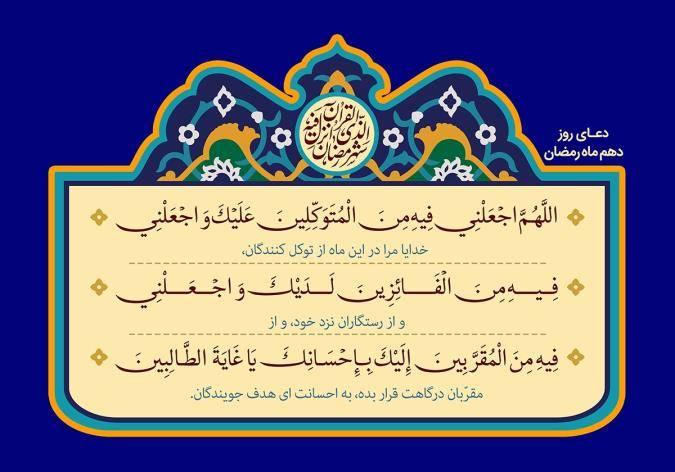 شهر رمضان الذی انزل فیه القرآن
دعـای روز
دهم ماه رمضان
اللَّهُمَّ اجْعَلْنِي فِيهِ مِنَ الْمُتَوَكِّلِينَ عَلَيْكَ وَ اجْعَلْنِي
خدایا مرا در این ماه از توکل کنندگان،
فِـيـهِ مِنَ الْفَـائِزِينَ لَـدَيْكَ وَ اجْـعَـلْنِي
و از رستگاران نزد خود، و از
فِيهِ مِنَ الْمُقَرَّبِينَ إِلَيْكَ بِإِحْسَانِكَ يَا غَايَةَ الطَّالِبِينَ
مقرّبان درگاهت قرار بده، به احسانت ای هدف جویندگان.